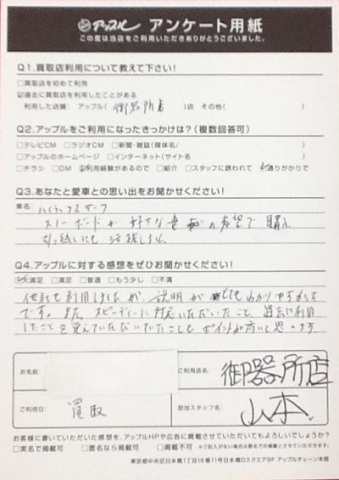 アップル アンケート用紙
この度は当店をご利用いただきありがとうございました。
Q1.買取店利用について教えて下さい!
□買取店を初めて利用
過去に買取店を利用したことがある
利用した店舗: アップル( 御器所 )店 その他( )
Q2.アップルをご利用になったきっかけは?(複数回答可)
□テレビCM □ラジオCM □新聞・雑誌(媒体名 )
□アップルのホームページ □インターネット(サイト名 )
□チラシ □DM 利用経験があるので □紹介 □スタッフに誘われて 通りがかりで
Q3.あなたと愛車との思い出をお聞かせください!
車名: ハイラックスサーフ
スノーボードが好きな の希望で購入
にも 活躍した。
Q4.アップルに対する感想をぜひお聞かせください!
大満足 □満足 □普通 □もう少し □不満
他社も利用しましたが、説明が とてもわかりやすかった
です。また、スピーディーに対応いただいたこと、過去に利用
したことを覚えていただいていたことも ポイントが高いと思います
お名前
ご利用店名: 御器所店
ご利用日: 買取
担当スタッフ名: 山本
お客様に書いていただいた感想を、アップルHPや広告に掲載させていただいてもよろしいでしょうか?
□実名で掲載可 □匿名なら掲載可 □掲載不可
東京都中央区日本橋1丁目16番11号日本橋Dスクエア5F アップルチェーン本部